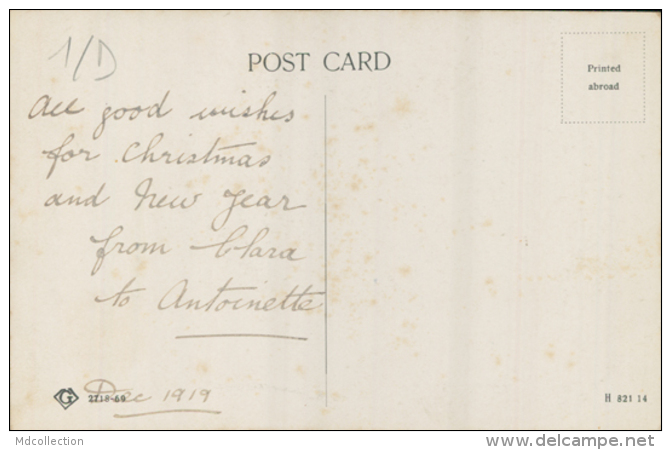 1/D
POST CARD
Printed
abroad
All good wishes
for Christmas
and New Year
from Clara
to Antoinette
2718-69
Dec 1919
H 821 14
Mdcollection
www.delcampe.net